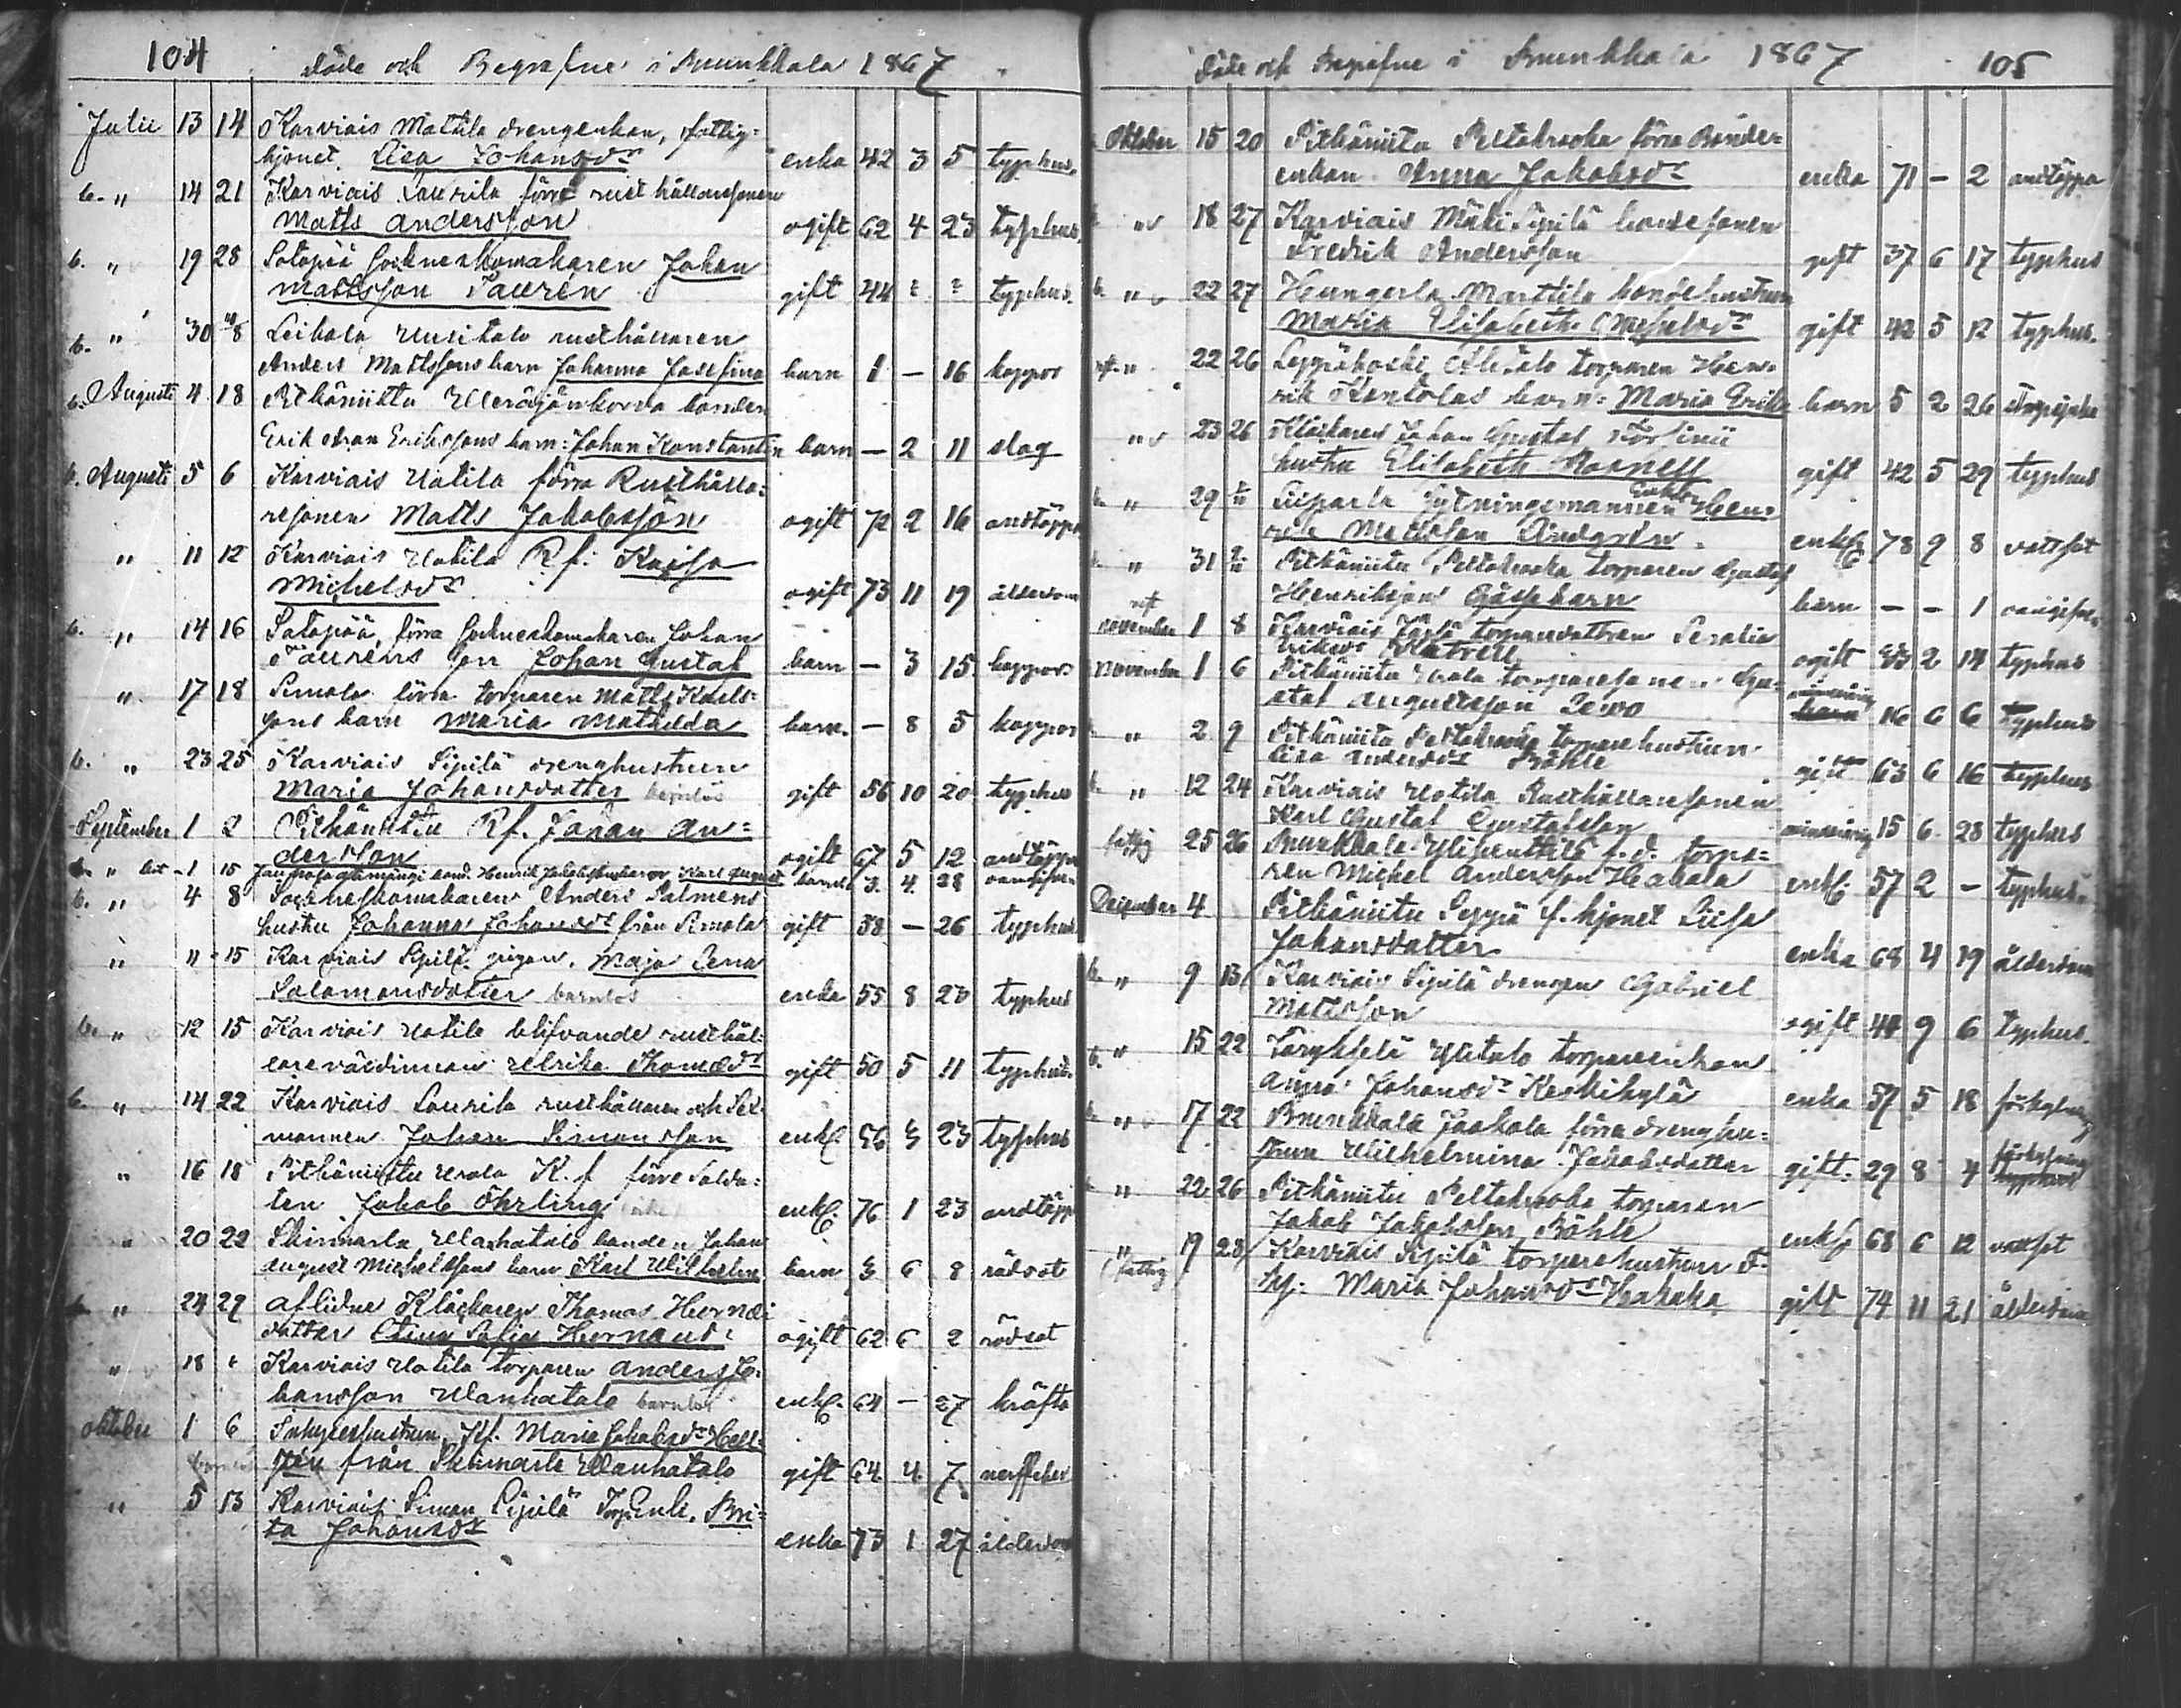 104 Döde och Begrafne i Brunkkala 1867
Julii 13 14 Karviais Mattila drengenkan, fattig=
hjonet Lisa Johansdr enka 42 3 5 typhus
b. " 14 21 Karviais Laurila förre rusthållaresonen
Matts Andersson ogift 62 4 23 typhus
b. " 19 28 Satopää Sockneskomakaren Johan
Mattsson Tauren gift 44 typhus
b. " 30 Leikola Uusitalo rusthållaren
Anders Mattssons barn Johanna Josefina barn 1 – 16 koppor
b. Augusti 4 18 Pitkäniittu bonden
Erik Erikssons barn: Johan Konstantin barn – 2 11 slag
b. Augusti 5 6 Karviais Uotila förra Rusthålla=
resonen Matts Jakobsson ogift 72 2 16 andtäppa
" 11 12 Karviais Uotila Rf. Kaisa
Michelsdr ogift 73 11 19 ålderdom
b. " 14 16 Satopää, förra Sockneskomakaren Johan
Taurens son Johan Gustaf barn – 3 15 koppor
" 17 18 Simola förra torparen Matts Karls=
sons barn Maria Mathilda barn – 8 5 koppor
b. " 23 25 Karviais Sipilä drenghustrun
Maria Johansdotter barnlös gift 56 10 20 typhus
September 1 2 Pitkäniittu Rf. Johan An=
dersson ogift 67 5 12 andtäppa
1 15 Henrik Karl August barn 3 4 28
b. " 4 8 Sockneskomakaren Anders Salmens
hustru Johanna Johansdr från Simola gift 38 – 26 typhus
" 11 15 Karviais Sipilä pigan, Maja Lena
Salomonsdotter barnlös enka 55 8 23 typhus
b. " 12 15 Karviais Uotila blifvande rusthål=
larevärdinnan Ulrika Thomædr gift 50 5 11 typhus
b. " 14 22 Karviais Laurila rusthållaren och Sex=
mannen Johan Simonsson enkl 56 23 typhus
" 16 18 Pitkäniittu Uvala K.f. förre Solda=
ten Jakob Öhrling enkl 76 1 23 andtäppa
" 20 22 Skinnarla Wanhatalo bonden Johan
August Michelssons barn Karl Wilhelm barn 6 8 rödsot
b. " 24 29 Aflidne Klockaren Thomas
dotter Stina Sofia ogift 62 6 2 rödsot
" 18 Karviais Uotila torparen Anders Jo=
hansson Wanhatalo barnlös enkl. 64 – 27 kräfta
Oktober 1 6 Inhyseshustrun, Kf. Maria Jakobsdr Hell=
stén från Skinnarla Wanhatalo gift 64 4 7 nerffeber
" 5 13 Karviais Simon Sipilä Torp.Enk. Bri=
ta Johansdr enka 73 1 27 ålderdom
Döde och Begrafne i Brunkkala 1867 105
Oktober 15 20 Pitkäniittu Peltokrooka förra Bonde=
enkan Anna Jakobsdr enka 71 – 2 andtäppa
" 18 27 Karviais Mäki Sipilä bondesonen
Fredrik Andersson gift 37 6 17 typhus
b. " 22 27 Hungerla Marttila bondehustrun
Maria Elisabeth Michelsdr gift 42 5 12 typhus
" 22 26 Leppäkoski Ylitalo torparen Hen=
rik Kantolas barn: Maria Erika barn 5 2 26
" 23 26 Klockaren Johan Gustaf
hustru Elisabeth gift 42 5 29 typhus
" 29 Hen=
rik Mattsson Lindgrén enkl 78 9 8 vattsot
" 31 Pitkäniittu Peltokrooka torparen Gustaf
Henriksons barn – – 1
November 1 8 Karviais torparedottren Serafia
ogift 2 14 typhus
November 1 6 Pitkäniittu Uvala torparesonen Gu=
staf Augustsson Leivo minderårig barn 16 6 6 typhus
" 2 9 Pitkäniittu Peltokrooka torparehustrun
Lisa Andersdr Böhle gift 63 6 16 typhus
b. " 12 24 Karviais Uotila Rusthållaresonen
Karl Gustaf Gustafsson minderårig 15 6 28 typhus
fattig 25 26 Brunkkala Ylipenttilä f.d. torpa=
ren Michel Andersson Hakala enkl. 57 2 – typhus
December 4 Pitkäniittu Seppä f.hjonet Liisa
Johansdotter enka 68 4 19 ålderdom
b. " 9 13 Karviais Sipilä drengen Gabriel
Mattsson ogift 44 9 6 typhus
b. " 15 22 Ylitalo torpareenkan
Anna Johansdr Keskikylä enka 57 5 18 förkylning
" 17 22 Brunkkala Jaakola förra drenghu=
strun Wilhelmina Jakobsdotter gift 29 8 4 förkylning typhus
" 22 26 Pitkäniittu Peltokrooka torparen
Jakob Jakobsson Böhle enkl 68 6 12 vattsot
" fattig 19 28 Karviais Sipilä torparehustrun F.
hj. Maria Johansdr Hakala gift 74 11 21 ålderdom